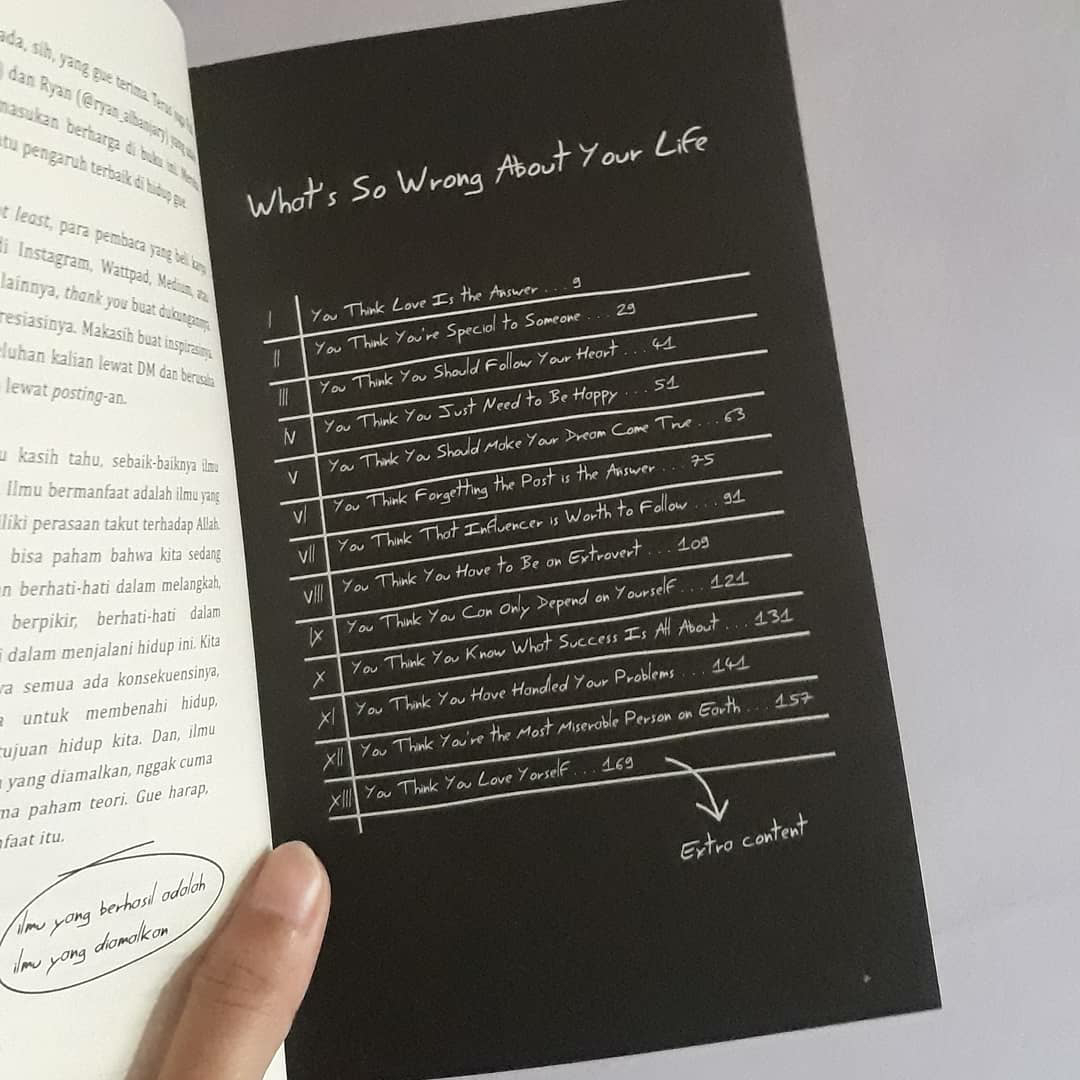 ada, sih, yang gue terima. Terus
dan Ryan (@ryan_albanjary) yang
masukan berharga di buku ini.
tu pengaruh terbaik di hidup gue.
least, para pembaca yang beli karya
Instagram, Wattpad, Medium, atau
lainnya, thank you buat dukungannya,
resiasinya. Makasih buat inspirasinya
luhan kalian lewat DM dan berusaha
lewat posting-an.
kasih tahu, sebaik-baiknya ilmu
Ilmu bermanfaat adalah ilmu yang
liki perasaan takut terhadap Allah.
bisa paham bahwa kita sedang
n berhati-hati dalam melangkah,
berpikir, berhati-hati dalam
dalam menjalani hidup ini. Kita
ra semua ada konsekuensinya,
untuk membenahi hidup,
tujuan hidup kita. Dan, ilmu
yang diamalkan, nggak cuma
ma paham teori. Gue harap,
faat itu.
ilmu yang berhasil adalah
ilmu yang diamalkan
What's So Wrong About Your Life
I You Think Love Is the Answer . . . 9
II You Think You're Special to Someone . . . 29
III You Think You Should Follow Your Heart . . . 41
IV You Think You Just Need to Be Happy . . . 51
V You Think You Should Make Your Dream Come True . . . 63
VI You Think Forgetting the Past is the Answer . . . 75
VII You Think That Influencer is Worth to Follow . . . 91
VIII You Think You Have to Be an Extrovert . . . 109
IX You Think You Can Only Depend on Yourself . . . 121
X You Think You Know What Success Is All About . . . 131
XI You Think You Have Handled Your Problems . . . 141
XII You Think You're the Most Miserable Person on Earth . . . 157
XIII You Think You Love Yorself . . . 169
Extra content